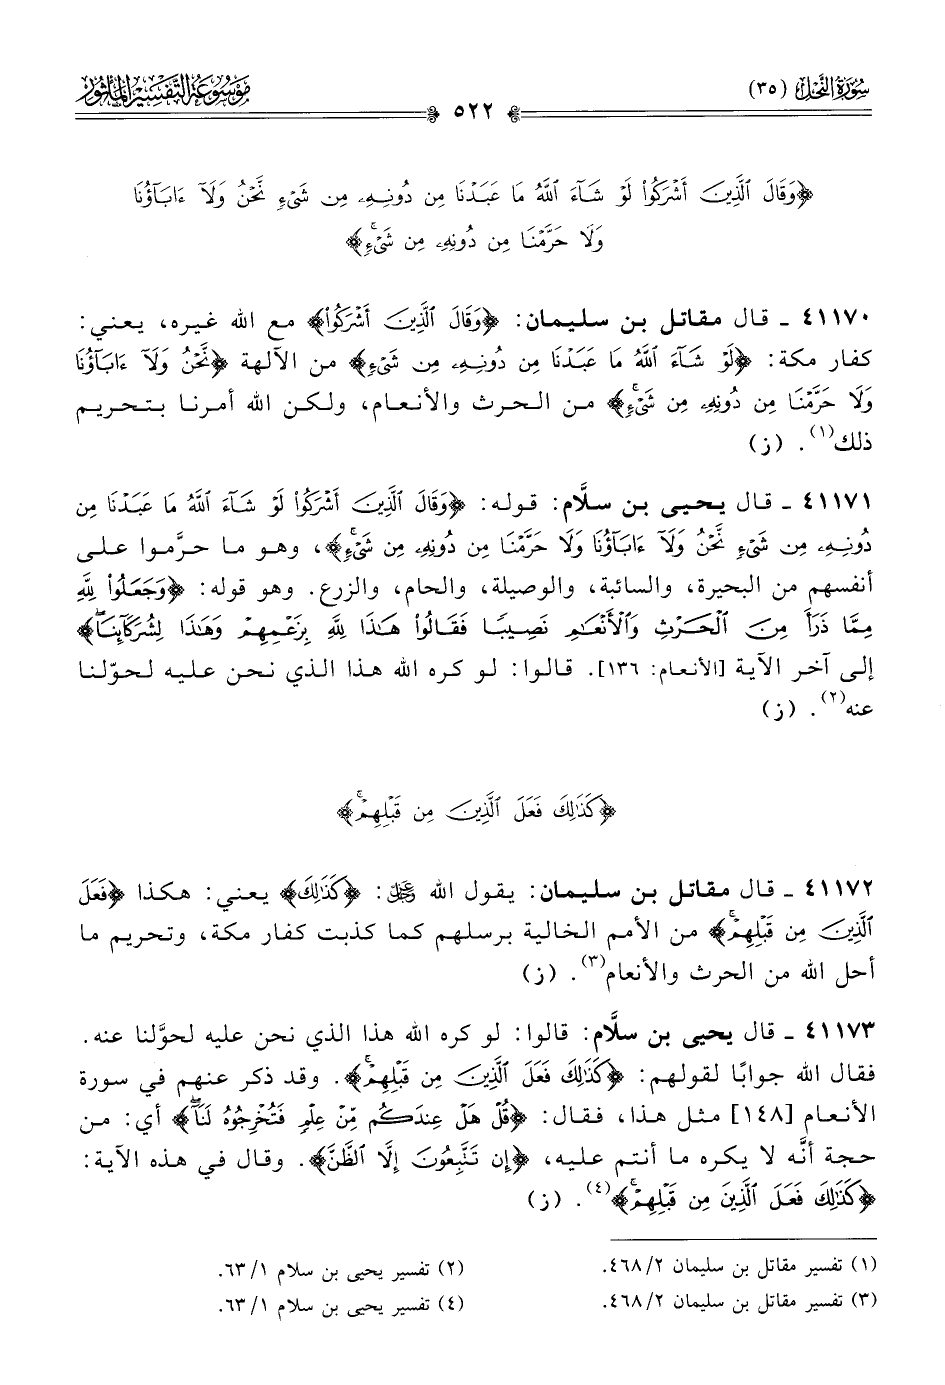 سُورَةُ النَّحْلِ (٣٥)
مَوْسُوعَةُ التَّفْسِيرِ المَأْثُورِ
٥٢٢
﴿وَقَالَ ٱلَّذِينَ أَشْرَكُوا۟ لَوْ شَآءَ ٱللَّهُ مَا عَبَدْنَا مِن دُونِهِۦ مِن شَىْءٍ نَّحْنُ وَلَآ ءَابَآؤُنَا
وَلَا حَرَّمْنَا مِن دُونِهِۦ مِن شَىْءٍۚ﴾
٤١١٧٠ ـ قال مقاتل بن سليمان: ﴿وَقَالَ ٱلَّذِينَ أَشْرَكُوا۟﴾ مع الله غيره، يعني:
كفار مكة: ﴿لَوْ شَآءَ ٱللَّهُ مَا عَبَدْنَا مِن دُونِهِۦ مِن شَىْءٍ﴾ من الآلهة ﴿نَّحْنُ وَلَآ ءَابَآؤُنَا
وَلَا حَرَّمْنَا مِن دُونِهِۦ مِن شَىْءٍۚ﴾ من الحرث والأنعام، ولكن الله أمرنا بتحريم
ذلك(١). (ز)
٤١١٧١ ـ قال يحيى بن سلَّام: قوله: ﴿وَقَالَ ٱلَّذِينَ أَشْرَكُوا۟ لَوْ شَآءَ ٱللَّهُ مَا عَبَدْنَا مِن
دُونِهِۦ مِن شَىْءٍ نَّحْنُ وَلَآ ءَابَآؤُنَا وَلَا حَرَّمْنَا مِن دُونِهِۦ مِن شَىْءٍۚ﴾، وهو ما حرَّموا على
أنفسهم من البحيرة، والسائبة، والوصيلة، والحام، والزرع. وهو قوله: ﴿وَجَعَلُوا۟ لِلَّهِ
مِمَّا ذَرَأَ مِنَ ٱلْحَرْثِ وَٱلْأَنْعَٰمِ نَصِيبًا فَقَالُوا۟ هَٰذَا لِلَّهِ بِزَعْمِهِمْ وَهَٰذَا لِشُرَكَآئِنَاۖ﴾
إلى آخر الآية [الأنعام: ١٣٦]. قالوا: لو كره الله هذا الذي نحن عليه لحوّلنا
عنه(٢). (ز)
﴿كَذَٰلِكَ فَعَلَ ٱلَّذِينَ مِن قَبْلِهِمْۚ﴾
٤١١٧٢ ـ قال مقاتل بن سليمان: يقول الله ﷿: ﴿كَذَٰلِكَ﴾ يعني: هكذا ﴿فَعَلَ
ٱلَّذِينَ مِن قَبْلِهِمْۚ﴾ من الأمم الخالية برسلهم كما كذبت كفار مكة، وتحريم ما
أحل الله من الحرث والأنعام(٣). (ز)
٤١١٧٣ ـ قال يحيى بن سلَّام: قالوا: لو كره الله هذا الذي نحن عليه لحوَّلنا عنه.
فقال الله جوابًا لقولهم: ﴿كَذَٰلِكَ فَعَلَ ٱلَّذِينَ مِن قَبْلِهِمْۚ﴾. وقد ذكر عنهم في سورة
الأنعام [١٤٨] مثل هذا، فقال: ﴿قُلْ هَلْ عِندَكُم مِّنْ عِلْمٍ فَتُخْرِجُوهُ لَنَآۖ﴾ أي: من
حجة أنَّه لا يكره ما أنتم عليه، ﴿إِن تَتَّبِعُونَ إِلَّا ٱلظَّنَّ﴾. وقال في هذه الآية:
﴿كَذَٰلِكَ فَعَلَ ٱلَّذِينَ مِن قَبْلِهِمْۚ﴾(٤). (ز)
(١) تفسير مقاتل بن سليمان ٢/ ٤٦٨.
(٢) تفسير يحيى بن سلام ١/ ٦٣.
(٣) تفسير مقاتل بن سليمان ٢/ ٤٦٨.
(٤) تفسير يحيى بن سلام ١/ ٦٣.